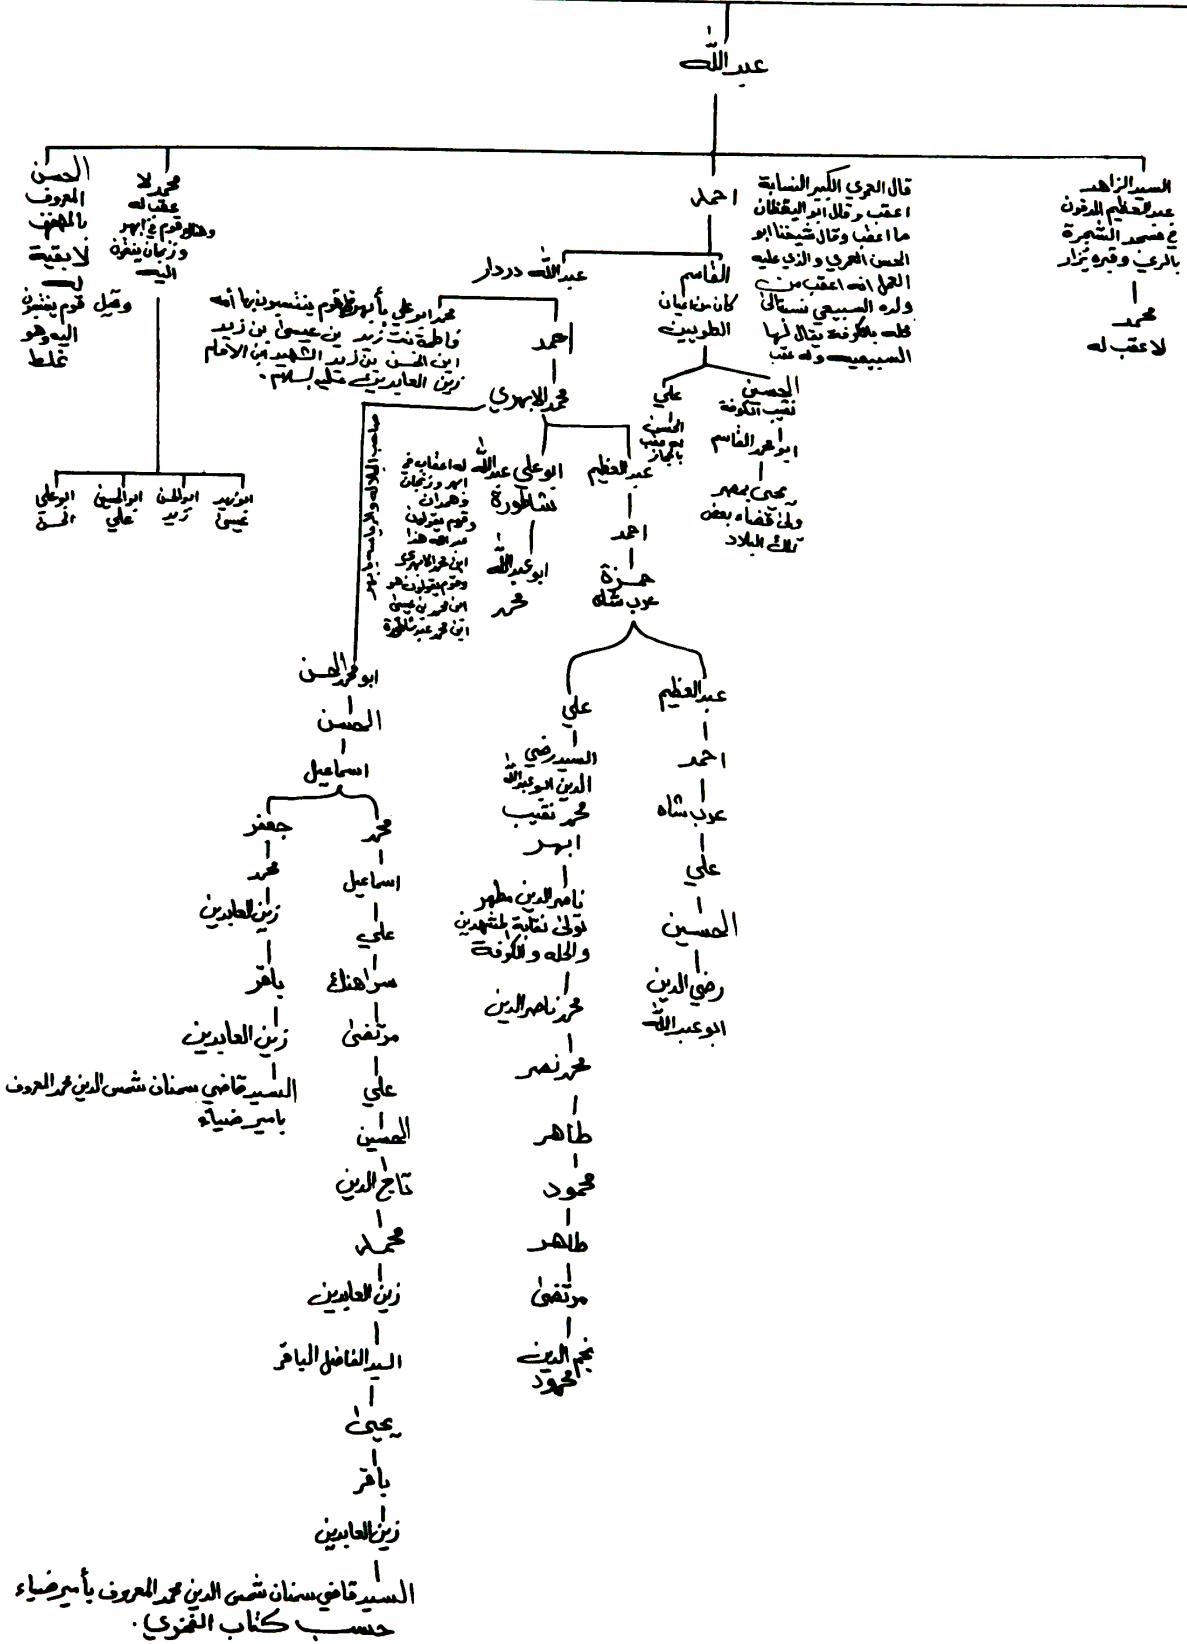 عبد الله
السيد الزاهد
عبد العظيم المدفون
في مسجد الشجرة
بالري وقبره يزار
محمد
لا عقب له
قال العمري الكبير النسابة
اعقب وقال ابو اليقظان
ما اعقب وقال شيخنا ابو
الحسن العمري والذي عليه
العمل انه اعقب من
ولده السبيعي نسبة الى
محله بالكوفة يقال لها
السبيعيه وله عقب
احمد
القاسم
كان من اعيان
الطالبيين
الحسين
نقيب الكوفة
ابو محمد القاسم
يحيى بمصر
ولي قضاء بعض
تلك البلاد
علي
الحسن
له عقب
بالحجاز
عبد الله دردار
احمد
محمد ابو علي بأبهر قوم ينتسبون بها أمه
فاطمة بنت زيد بن عيسى بن زيد
ابن الحسن بن زيد الشهيد ابن الامام
زين العابدين عليه السلام.
محمد الابهري
عبد العظيم
احمد
حمزة
عرب شاه
عبد العظيم
احمد
عرب شاه
علي
الحسين
رضي الدين
ابو عبد الله
علي
السيد رضي
الدين ابو عبد الله
محمد نقيب
ابهر
ناصر الدين مطهر
تولى نقابة المشهدين
والحله والكوفة
محمد ناصر الدين
محمد نصر
طاهر
محمود
طاهر
مرتضى
نجم الدين
محمود
ابو علي عبد الله
شاطورة
ابو عبد الله
محمد
له اعقاب في
ابهر وزنجان
وهمدان
وقوم يقولون
عبد الله هذا
ابن محمد الابهري
وقوم يقولون هو
ابن محمد بن عيسى
ابن محمد
صاحب الجلاله والرياسه بابهر
ابو محمد الحسن
الحسن
اسماعيل
محمد
اسماعيل
علي
سراهنك
مرتضى
علي
الحسين
تاج الدين
محمد
زين العابدين
السيد الفاضل الباقر
يحيى
باقر
زين العابدين
السيد قاضي سمنان شمس الدين محمد المعروف بأمير ضياء
حسب كتاب
جعفر
محمد
زين العابدين
باقر
زين العابدين
السيد قاضي سمنان شمس الدين محمد المعروف
بامير ضياء
محمد لا
عقب له
وهناك قوم في ابهر
وزنجان
اليه
ابو زيد
عيسى
ابو الحسن
زيد
ابو الحسين
علي
ابو علي
الحسن
الحسن
المعروف
لا بقية
له
وقيل قوم ينتسبون
اليه وهو
غلط